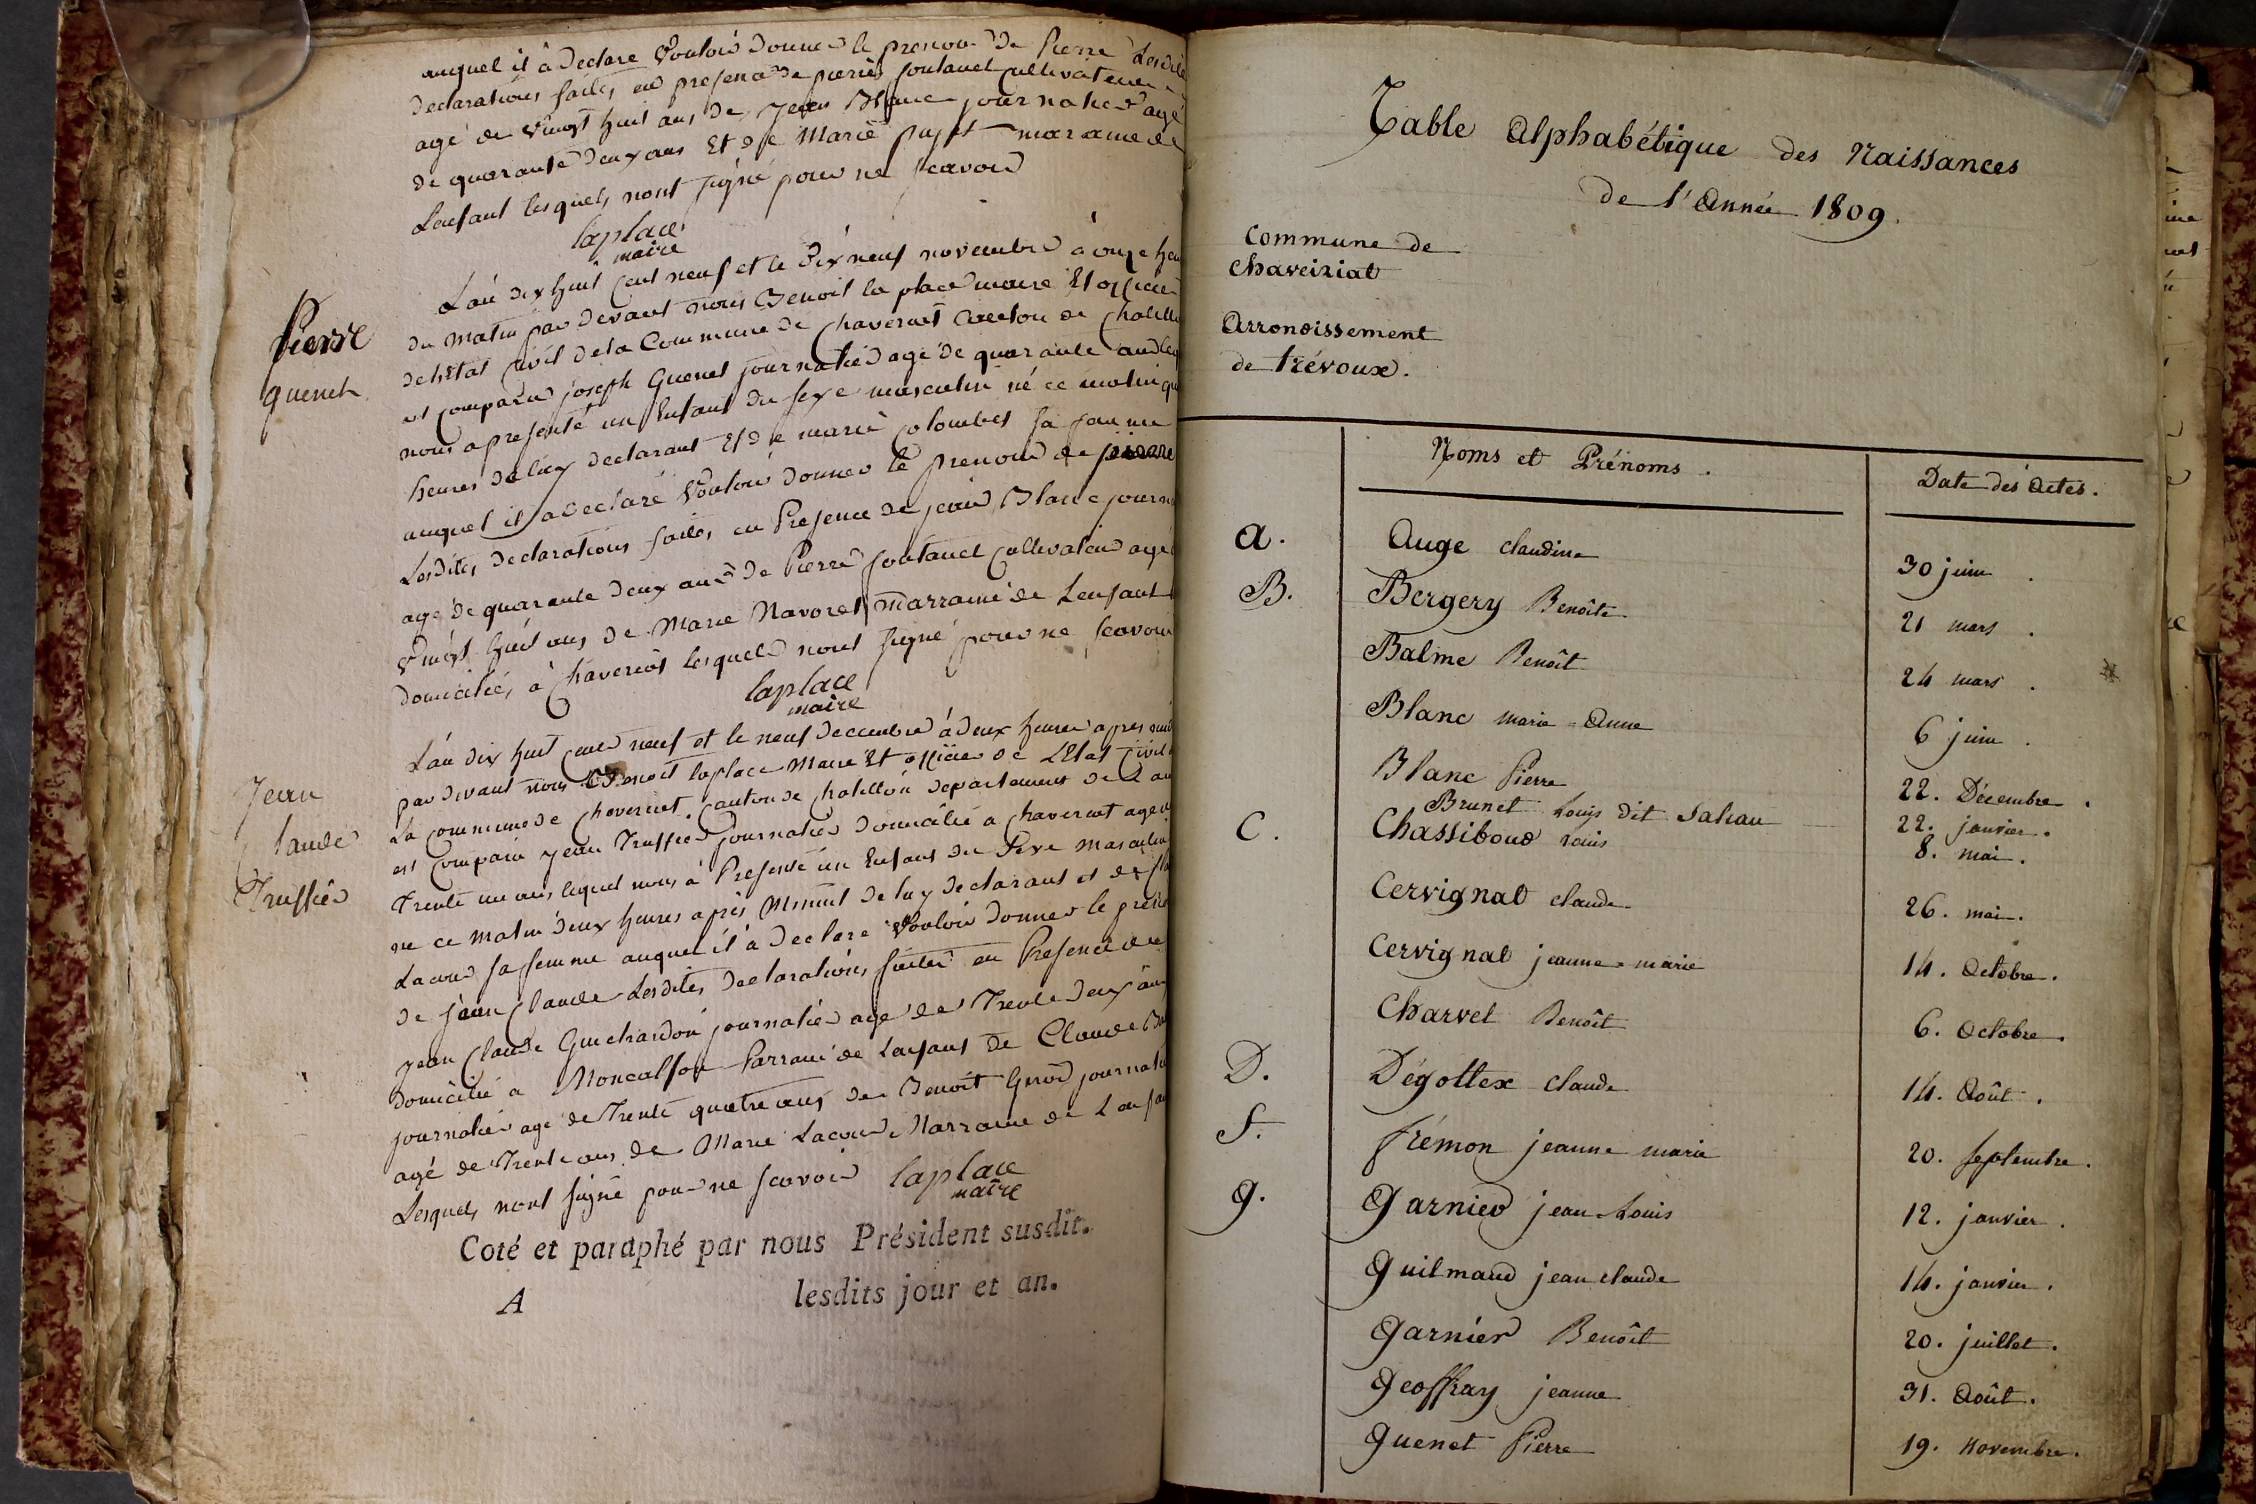 auquel il à Declaré Vouloir donner le prenom De Pierre Lesdites
declarations faites en presence de pierre fontanel Cultivateur
agé de Vingt huit ans de Jean Blanc journalier agé
de quarante deux ans Et de Marie pujet maraine de
Lenfant lesquels nont signé pour ne scavoir
laplace
maire
Pierre
guenet
L'an dix huit Cent neuf et le dix neuf novembre à onze heu
du matin par devant nous Benoit la place maire Et officier
de letat Civil de la Commune de Chaveriat Canton de Chatillon
est Comparu joseph Guenet journalier agé de quarante ans leq
nous a presenté un Enfant du sexe masculin né ce matin
heures de luy declarant Et de marie Colombet sa femme
auquel il a declaré Vouloir donner le prenom de pierre
Lesdites declarations faites en Presence de jean Blanc journ
agé de quarante deux ans de Pierre fontanel Cultivateur agé
Vingt huit ans de Marie Navoret marraine de Lenfant
domiciliés à Chaveriat lesquels nont signé pour ne scavoir
laplace
maire
Jean
Claude
Truffier
L'an dix huit Cent neuf et le neuf decembre à deux heures apres midi
par devant nous Benoit laplace Maire Et officier de L'Etat Civil
La Commune de Chaveriat Canton de Chatillon departement de L'ain
est Comparu Jean Truffier journalier domicilié a Chaveriat agé
Trente un ans lequel nous à Presenté un Enfant du Sexe masculin
né ce matin deux heures après Minuit de luy declarant et de
Lacour sa femme auquel il à declaré Vouloir donner le preno
de jean Claude Lesdites declarations faites en Presence de
jean Claude Guichardon journalier agé de Trente deux ans
domicilié a Parrain de Lenfant de Claude
journalier agé de Trente quatre ans de Benoit journalier
agé de Trente ans de Marie Lacour Marraine de Lenfan
Lesquels nont signé pour ne scavoir laplace
maire
Coté et paraphé par nous Président susdit.
A lesdits jour et an.
Table Alphabétique des Naissances
de l'Année 1809.
Commune de
Chaveiriat
Arrondissement
de trévoux.
Noms et Prénoms. Date des Actes.
a. Auge claudine 30 juin.
B. Bergery Benoîte 21 mars.
Balme Benoît 24 mars.
Blanc marie = Anne 6 juin.
Blanc Pierre 22. Décembre.
Brunet Louis dit Sahau 22. janvier.
C. Chassiboud Louis 8. mai.
Cervignat claude 26. mai.
Cervignat jeanne = marie 14. Octobre.
Charvet Benoît 6. Octobre.
D. Dégottex claude 14. Août.
f. frémon jeanne marie 20. septembre.
g. garnier jean Louis 12. janvier.
guilmaud jean claude 14. janvier.
garnier Benoît 20. juillet.
geoffray jeanne 31. Août.
guenet Pierre 19. novembre.